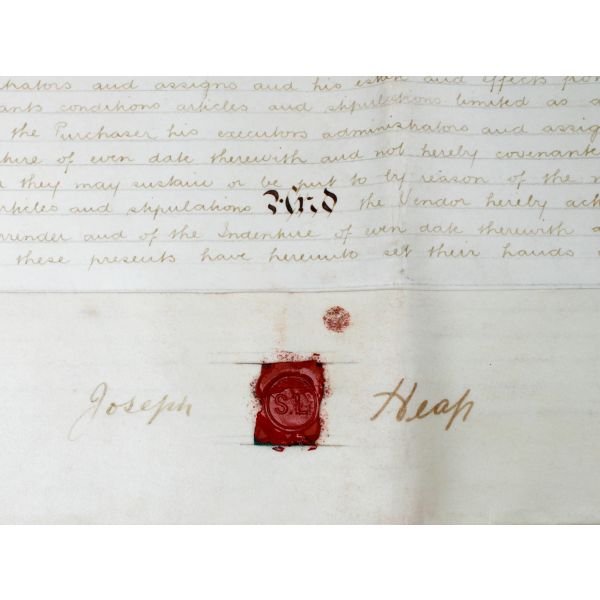 and assigns and his estate and effects from
conditions articles and stipulations limited as a
the Purchaser his executors administrators and assig
ture of even date therewith and not hereby covenante
d they may sustain or be put to by reason of the n
articles and stipulations And the Vendor hereby ack
rrender and of the Indenture of even date therewith a
these presents have hereunto set their hands
Joseph S.L. Heap